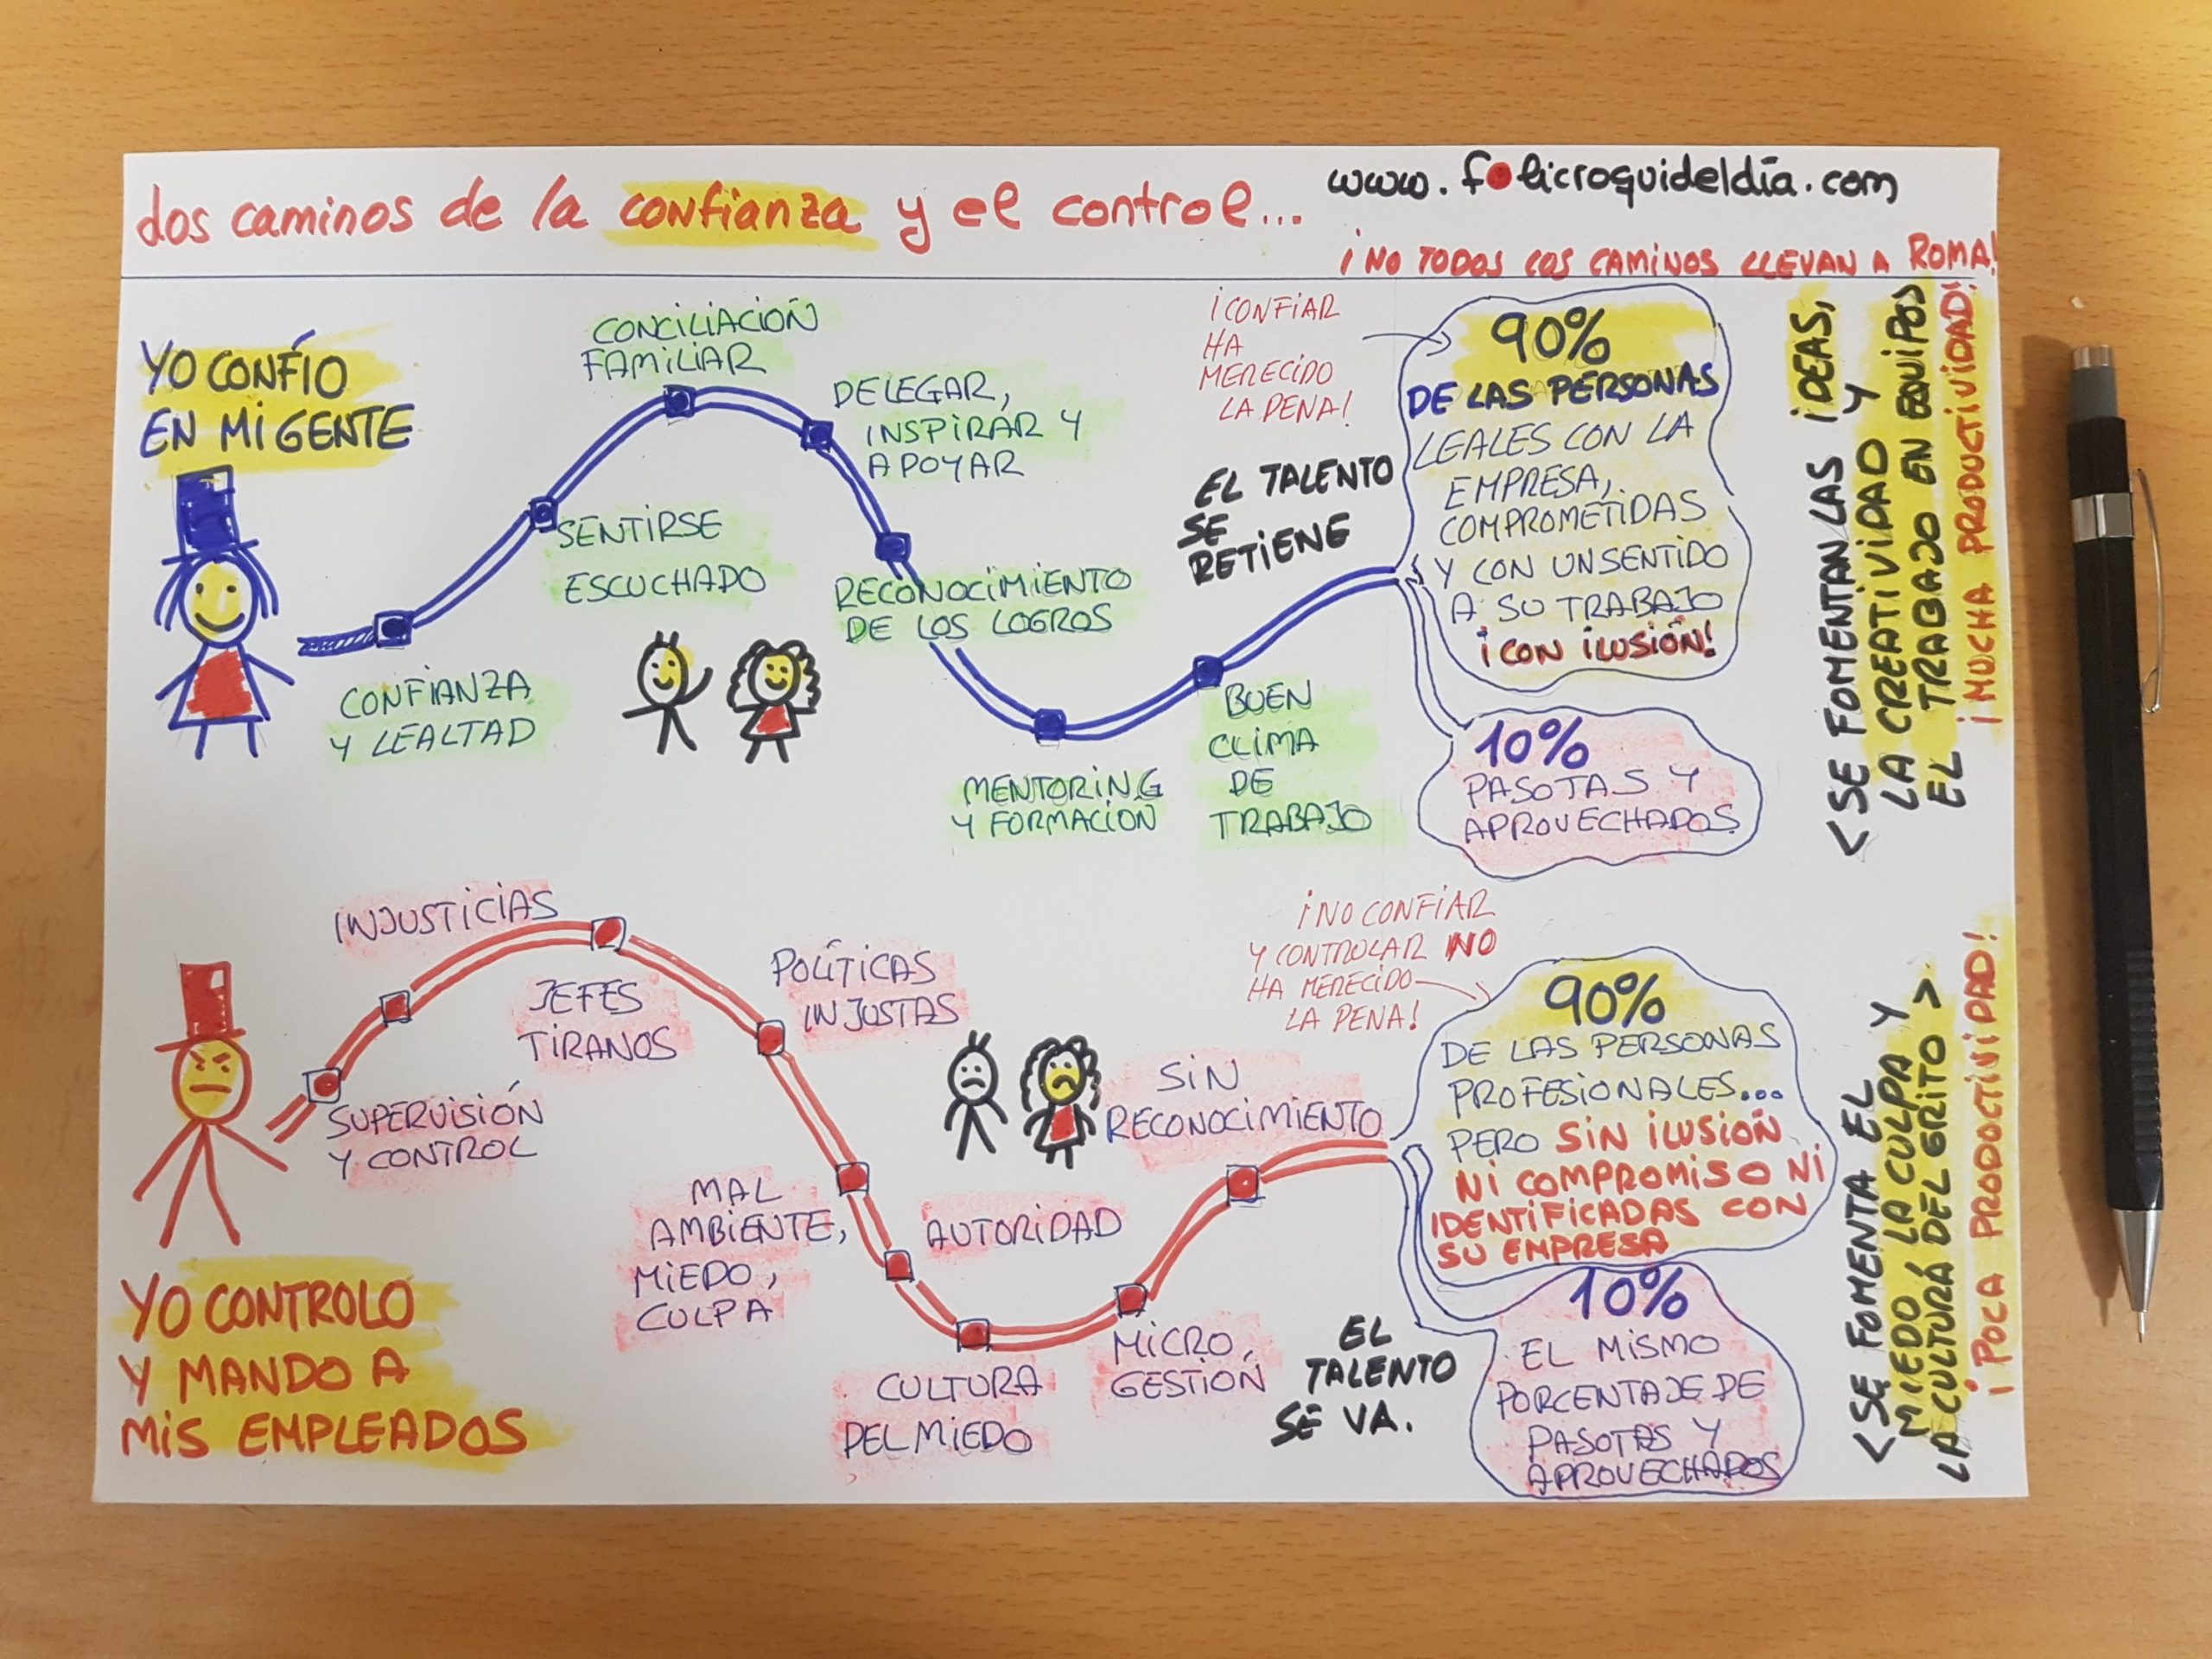 dos caminos de la confianza y el control...
www.folicroquideldía.com
¡NO TODOS LOS CAMINOS LLEVAN A ROMA!
YO CONFÍO
EN MI GENTE
CONFIANZA
Y LEALTAD
SENTIRSE
ESCUCHADO
CONCILIACIÓN
FAMILIAR
DELEGAR,
INSPIRAR Y
APOYAR
RECONOCIMIENTO
DE LOS LOGROS
MENTORING
Y FORMACIÓN
BUEN
CLIMA
DE
TRABAJO
EL TALENTO
SE
RETIENE
¡CONFIAR
HA
MERECIDO
LA PENA!
90%
DE LAS PERSONAS
LEALES CON LA
EMPRESA,
COMPROMETIDAS
Y CON UN SENTIDO
A SU TRABAJO
¡CON ILUSIÓN!
10%
PASOTAS Y
APROVECHADOS
<SE FOMENTAN LAS IDEAS,
LA CREATIVIDAD Y
EL TRABAJO EN EQUIPOS
¡MUCHA PRODUCTIVIDAD!
YO CONTROLO
Y MANDO A
MIS EMPLEADOS
SUPERVISIÓN
Y CONTROL
INJUSTICIAS
JEFES
TIRANOS
POLÍTICAS
INJUSTAS
MAL
AMBIENTE,
MIEDO,
CULPA
AUTORIDAD
CULTURA
DEL MIEDO
MICRO
GESTIÓN
SIN
RECONOCIMIENTO
EL
TALENTO
SE VA.
¡NO CONFIAR
Y CONTROLAR NO
HA MERECIDO
LA PENA!
90%
DE LAS PERSONAS
PROFESIONALES...
PERO SIN ILUSIÓN
NI COMPROMISO NI
IDENTIFICADAS CON
SU EMPRESA
10%
EL MISMO
PORCENTAJE DE
PASOTAS Y
APROVECHADOS
<SE FOMENTA EL
MIEDO, LA CULPA Y
LA CULTURA DEL GRITO>
¡POCA PRODUCTIVIDAD!